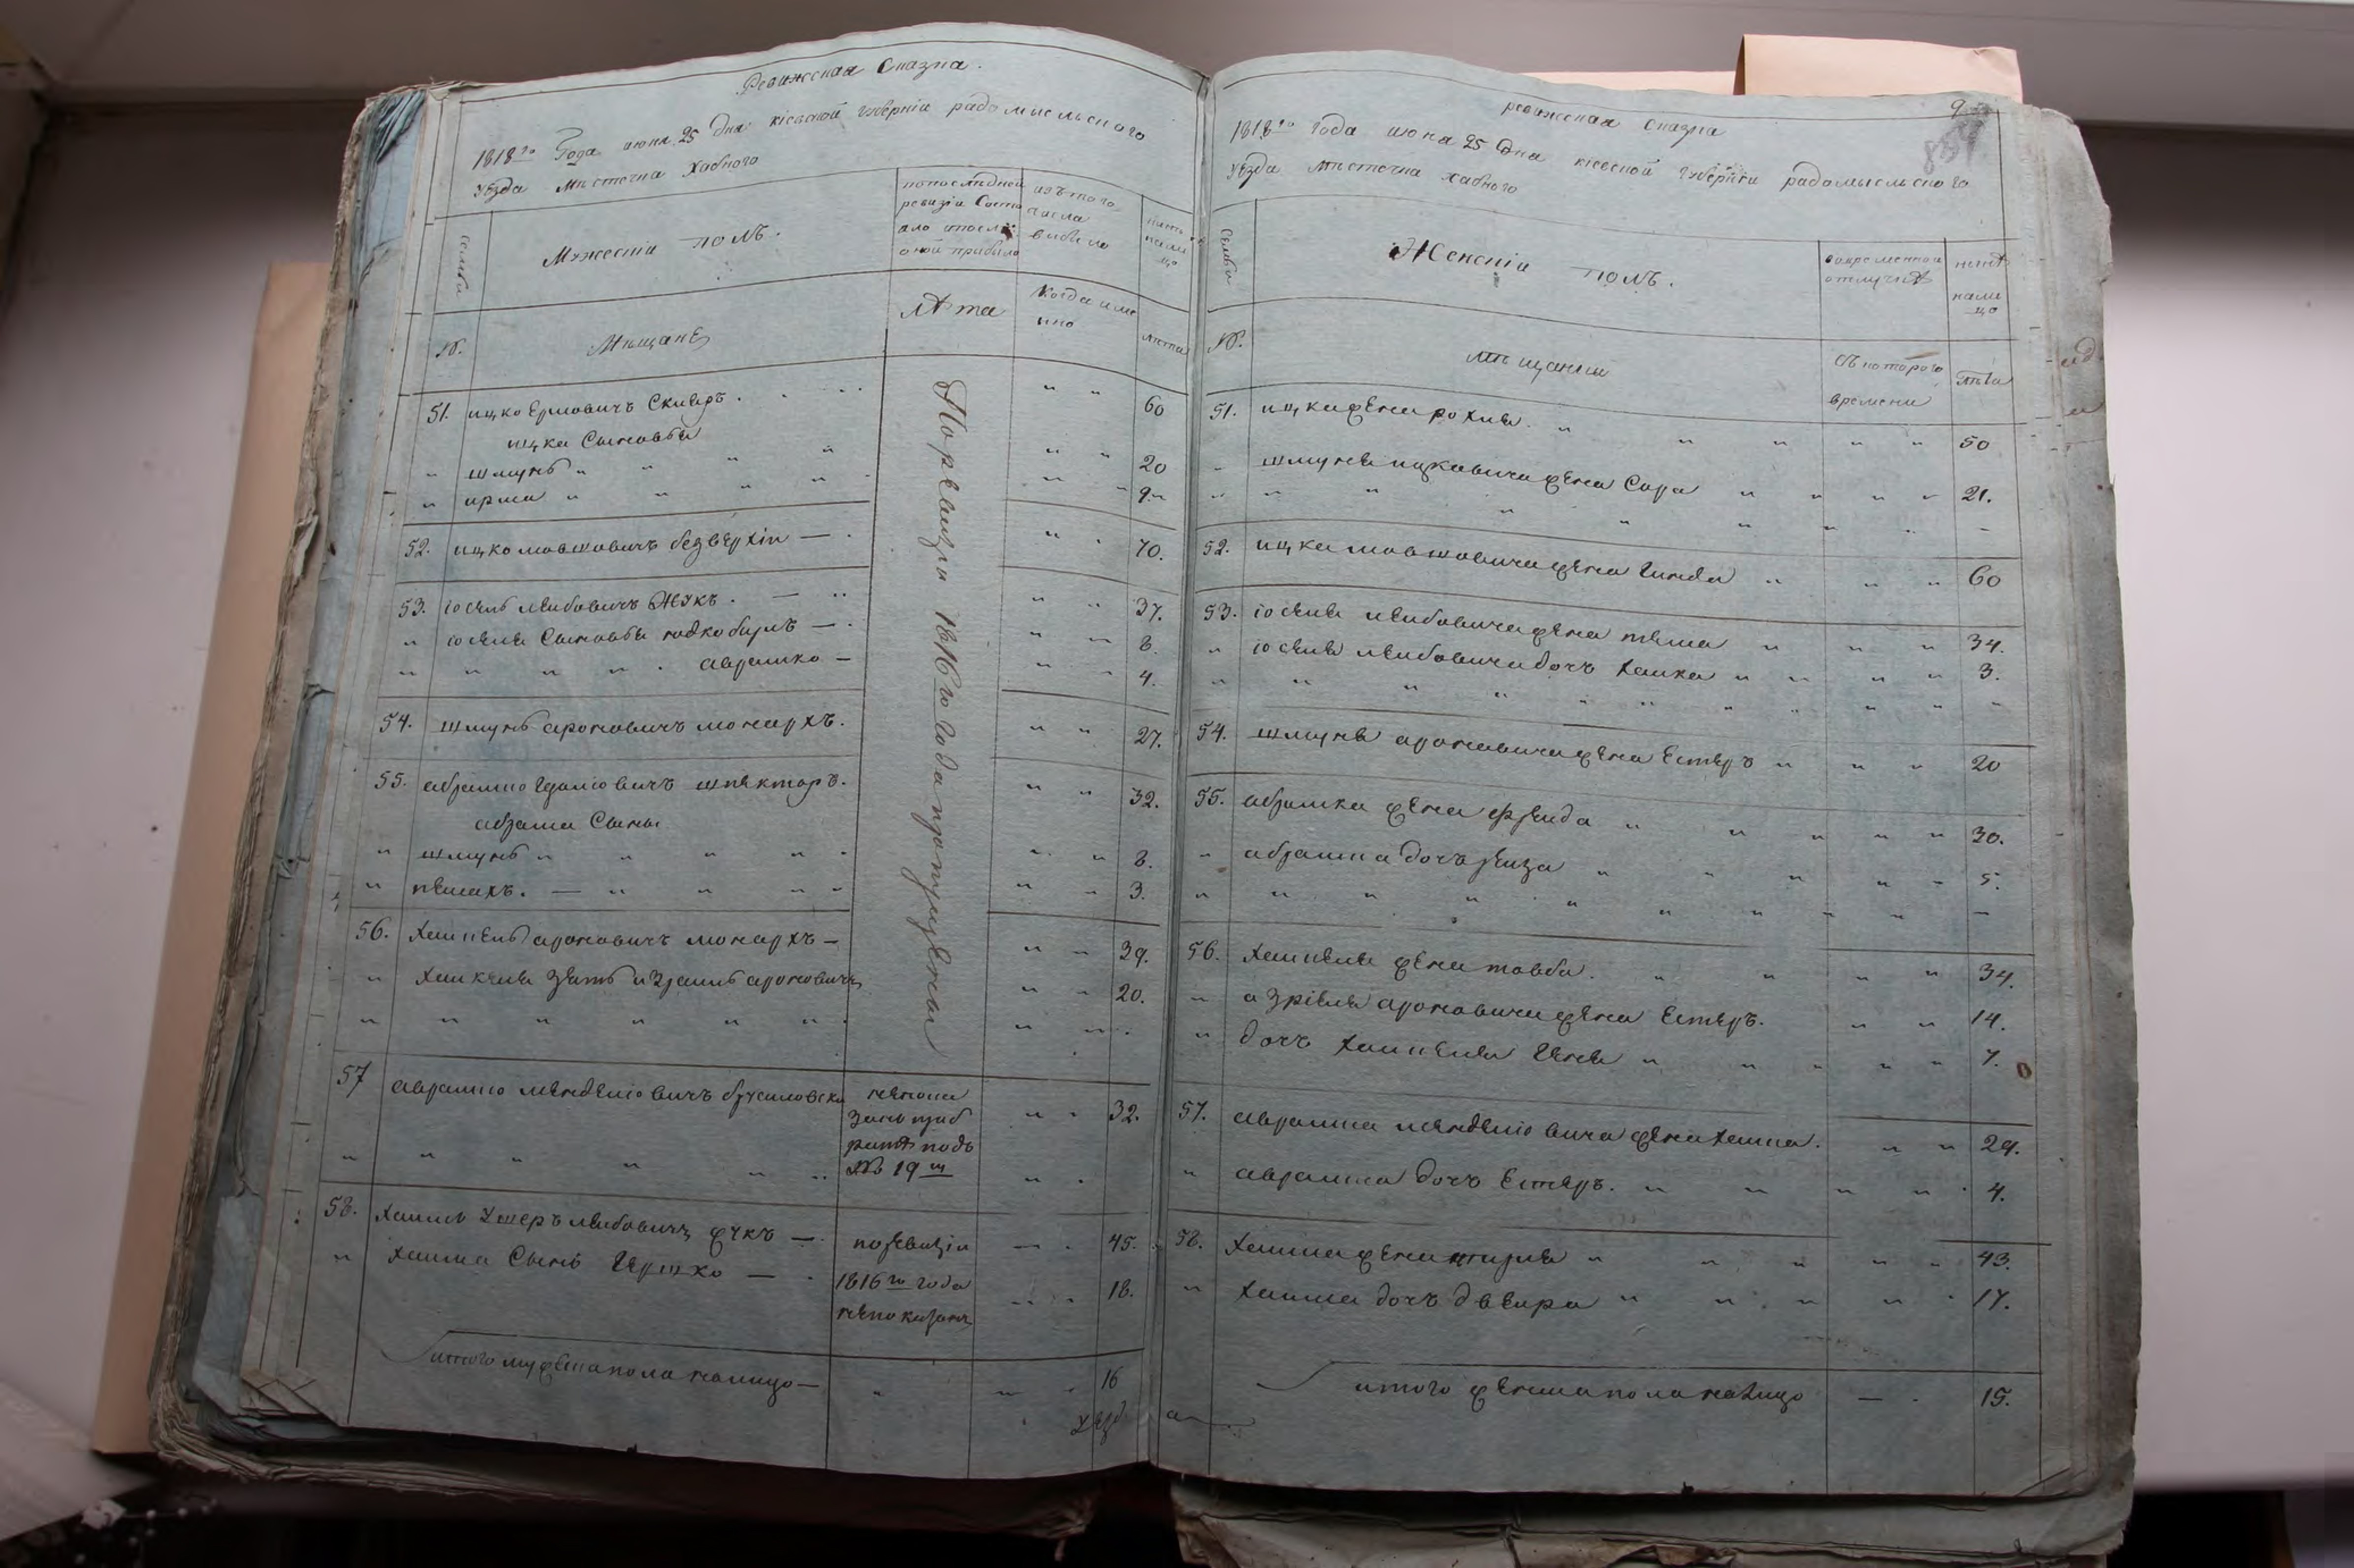 Ревижская Сказка.
1818го Года июня 25 дня кіевской губерніи радомысльского
уѣзда мѣстечка Хабного
Семьи
Мужескіи полъ.
по последной
ревизіи Состо
яло ипослѣ
оной прибыло
изътого
числа
выбыло
нынѣ
нали
цо
№.
Мѣщанѣ
Лѣта
Когда име
нно
лѣта
По ревизіи 1816го года пропущены
51. ицко Ермовичъ Скверъ. 60
ицка Сыновья
" шмуль " " " " 20
" ирма " " " " 9.
52. ицко мовшовичъ безверхіи — 70.
53. іосель лейбовичъ Жукъ. — 37.
" іоселя Сыновья 8.
" " " " аврамко — 4.
54. шмуль ароновичъ монархъ. 27.
55. абрамко шпекторъ. 32.
абрама Сыны
" шмуль " " " " 8.
" пейсахъ. — " " " " 3.
56. Хаикель ароновичъ монархъ — 39.
" Хаикеля Зять израиль ароновичъ 20.
57 аврамко менделіовичъ 32.
подъ
№ 19м
58. Хаимъ Ушеръ лейбовичъ жукъ — 45.
" Хаима Сынъ Гершко — 18.
по ревизіи
1816го года
непоказаны
итого мужеска пола налицо — 16
Уезд
ревижская Сказка
9
1818го года июня 25 дня кіевской губерніи радомысльского
уѣзда мѣстечка хабного
Семьи
Женскіи полъ.
вовременной
отлучкѣ
нынѣ
нали
цо
№.
мѣщанки
Съ которого
времени
Лѣта
51. ицка жена рохля. " 50
" шмуля ицковича жена Сора " 21.
52. ицка мовшовича жена Гинда " 60
53. іоселя лейбовича жена 34.
" іоселя лейбовича дочъ хаика " 3.
54. шмуля ароновича жена Естеръ " 20
55. абрамка жена фрейда " 30.
" абрамка дочъ реиза " 5.
56. Хаикеля жена товба. " 34.
" азріеля ароновича жена Естеръ. 14.
" дочъ хаикеля Геня " 7.
57. аврамка менделіовича жена хаика. 29.
" аврамка дочъ Естеръ. " 4.
58. Хаима жена " 43.
" Хаима дочъ двеира " 17.
итого женска пола налицо — 15.
а